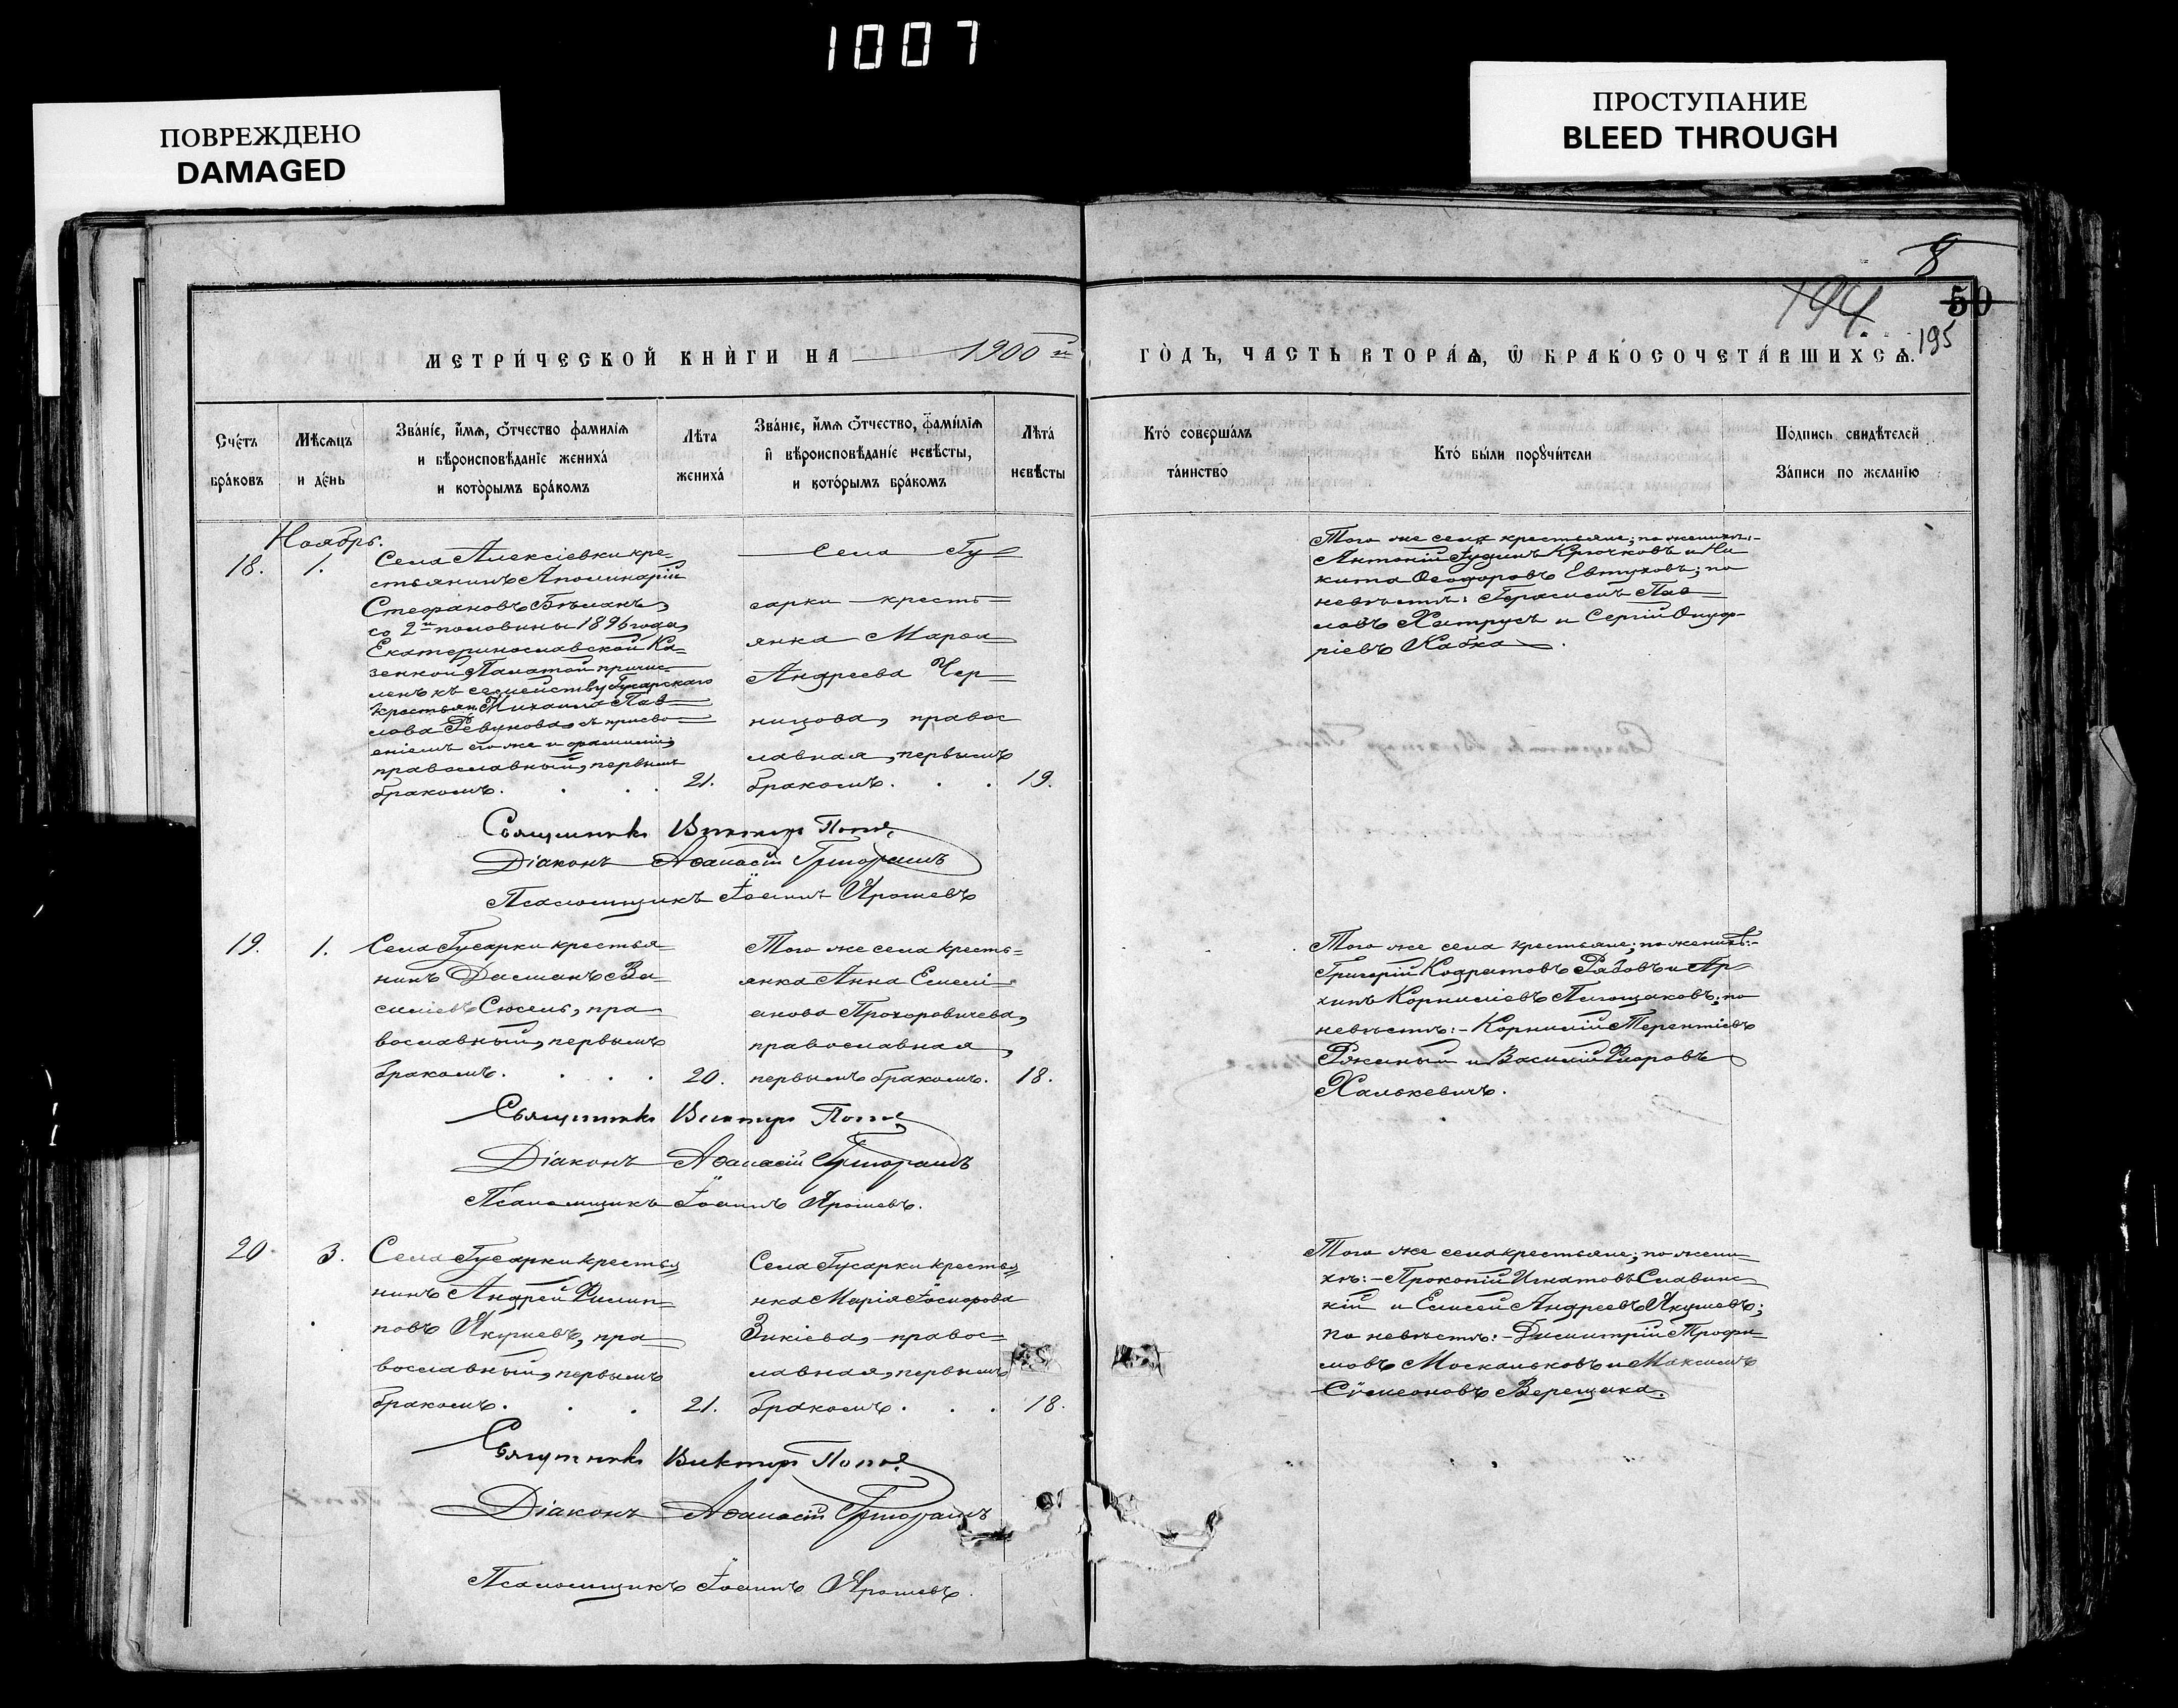 1007
ПОВРЕЖДЕНО
DAMAGED
ПРОСТУПАНИЕ
BLEED THROUGH
8
194
50
195
МЕТРИ́ЧЕСКОЙ КНИ́ГИ НА 1900й
ГО́ДЪ, ЧАСТЬ ВТОРА́Ѧ, Ѿ БРАКОСОЧЕТА́ВШИХСѦ.
Сче́тъ
бра́ковъ
Мѣ́сяцъ
и де́нь
Зва́ніе, и́мя, о́тчество фами́лія
и вѣроисповѣ́даніе жениха́
и кото́рымъ бра́комъ
Лѣта
жениха́
Зва́ніе, и́мя о́тчество, фами́лія
и вѣроисповѣ́даніе невѣ́сты,
и кото́рымъ бра́комъ
Лѣта́
невѣ́сты
Кто́ соверша́лъ
та́инство
Кто́ бы́ли поручи́тели
По́дпись свидѣ́телей
За́писи по жела́нію
Ноябрь.
18. 1.
Села Алексіевки кре-
стьянинъ Аполинарій
Стефановъ Бѣланъ,
со 2й половины 1896 года,
Екатеринославской Ка-
зенной Палатой причис-
ленъ къ семейству Гусарскаго
крестьян. Михаила Пав-
лова Ревунова, съ присво-
еніемъ его же и фамиліи,
православный, первымъ
бракомъ. 21.
Села Гу-
сарки кресть-
янка Марѳа
Андреева Чер-
ницова, правос
лавная, первымъ
бракомъ. 19.
Того же села крестьяне; по женихѣ:-
Антоній Іудинъ Крючковъ и Ни
кита Ѳеодоровъ Евтуховъ; по
невѣстѣ: Герасимъ Пав-
ловъ Хатрусъ и Сергій Онуф-
ріевъ Кабка.
Священникъ Викторъ Поповъ
Діаконъ Аѳанасій
Псаломщикъ Іоаннъ Ярошевъ
19. 1.
Села Гусарки крестья
нинъ Даміанъ Ва-
силіевъ Сюсель, пра
вославный, первымъ
бракомъ. 20.
Того же села кресть-
янка Анна Емелі-
анова Прохоровичева,
православная,
первымъ бракомъ. 18.
Того же села крестьяне; по женихѣ:-
Григорій Кодратовъ Рябовъ и Ар-
хипъ Корниліевъ Плющаковъ; по
невѣстѣ:- Корнилій Терентіевъ
Ряженый и Василій Флоровъ
Халькевичъ.
Священникъ Викторъ Поповъ
Діаконъ Аѳанасій
Псаломщикъ Іоаннъ Ярошевъ.
20. 3.
Села Гусарки крестья
нинъ Андрей Филип-
повъ Якушевъ, пра
вославный, первымъ
бракомъ. 21.
Села Гусарки крестья
нка Марія Іосифова
Зикіева, правос-
лавная, первымъ
бракомъ. 18.
Того же села крестьяне; по жени-
хѣ:- Прокопій Игнатовъ Славинс
кій и Елисей Андреевъ Якушевъ;
по невѣстѣ:- Димитрій Трофи-
мовъ Москальковъ и Максимъ
Сѵмеоновъ Верещака.
Священникъ Викторъ Поповъ
Діаконъ Аѳанасій
Псаломщикъ Іоаннъ Ярошевъ.